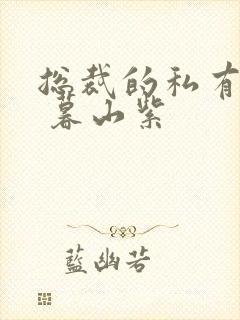 总裁的私有
暮山紫
藍幽若